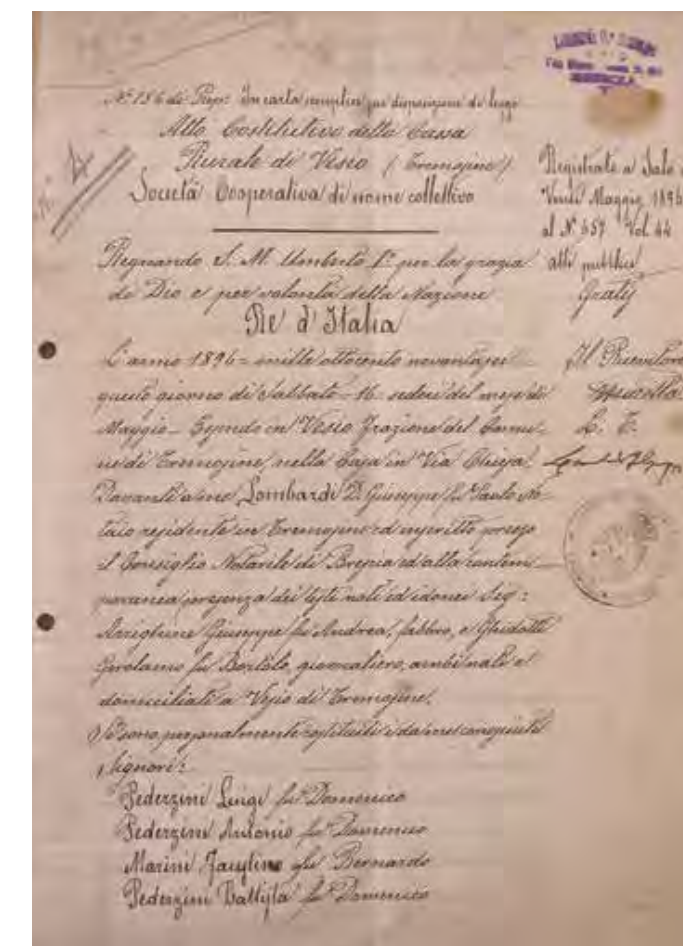 N.º 186 di Rep. In carta semplice per disposizione di legge
Atto Costitutivo della Cassa
Rurale di Vesio (Tremosine)
Società Cooperativa di nome collettivo
n.º 4
Registrato a Salò
Venti Maggio 1896
al N.º 557 Vol. 44
atti pubblici
Gratis
Regnando S. M. Umberto I.º per la grazia
di Dio e per volontà della Nazione
Re d'Italia
L'anno 1896 = mille ottocento novantasei
questo giorno di Sabbato - 16 - sedici del mese di
Maggio - Essendo in Vesio Frazione del Comu-
ne di Tremosine, nella Casa in Via Chiesa.
Davanti a me Lombardi D. Giuseppe fu Paolo No-
taio residente in Tremosine ed inscritto presso
il Consiglio Notarile di Brescia ed alla contem-
poranea presenza dei testi noti ed idonei Sig:
Giuseppe fu Andrea, fabbro, e Ghidotti
Gerolamo fu Bortolo, giornaliero, ambi nati e
domiciliati a Vesio di Tremosine.
Si sono personalmente costituiti e da me conosciuti
i Signori:
Pederzini Luigi fu Domenico
Pederzini Antonio fu Domenico
Marini Faustino fu Bernardo
Pederzini Battista fu Domenico
Il Ricevitore
L. T.